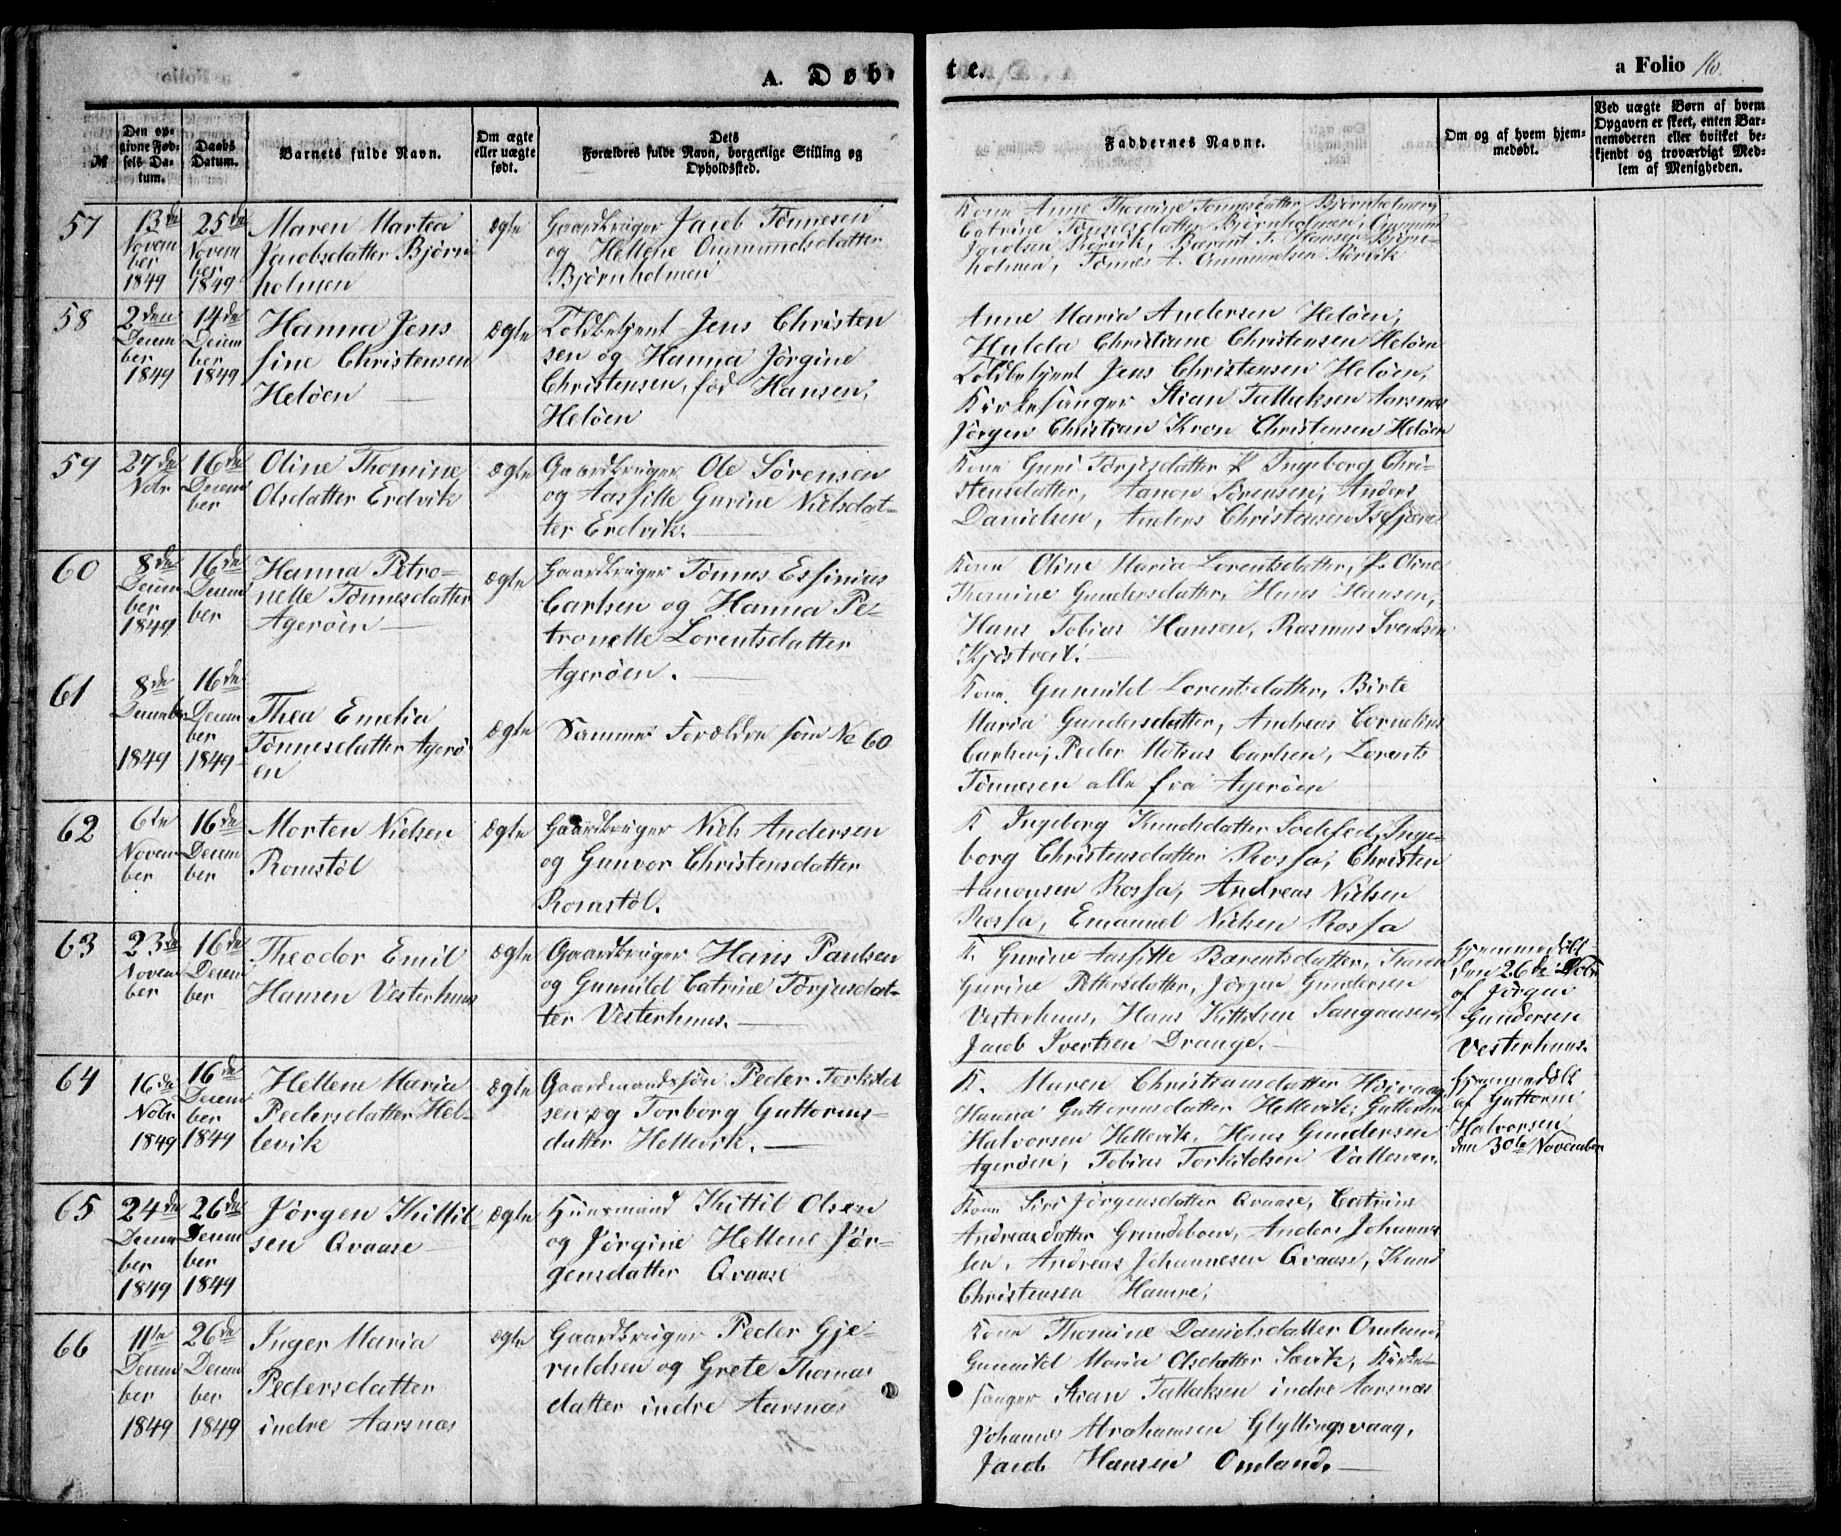 A. Døb-
te.
a Folio 16.
№
Den opgivne Fødsels Datum.
Daabs Datum.
Barnets fulde Navn.
Om ægte eller uægte født.
Dets Forældres fulde Navn, borgerlige Stilling og Opholdssted.
Faddernes Navne.
Om og af hvem hjemmedøbt.
Ved uægte Børn af hvem Opgaven er skeet, enten Barnemoderen eller hvilket bekjendt og troværdigt Medlem af Menigheden.
57
13de
Novem
ber
1849
25de
Novem
ber
1849
Maren Martea
Jacobsdatter Bjørn
holmen
ægte
Gaardbruger Jacob Tønnesen
og Hellene Ommundsdatter
Bjørnholmen
Kone Anne Thomine Tønnesdatter Bjørnholmen,
Catrine Tønnesdatter Bjørnholmen, Ommund
Jacobsen Kiørvik, Bærent T. Hansen Bjørn-
holmen, Tønnes A. Ommundsen Kiørvik
58
2den
Decem
ber
1849
14de
Decem
ber
1849
Hanna Jens
sine Christensen
Heløen
ægte
Toldbetjent Jens Christen
sen og Hanna Jörgine
Christensen, fød Hansen,
Heløen
Anne Maria Andersen Heløen,
Hulda Christiane Christensen Heløen
Toldbetjent Jens Christensen Heløen,
Kirkesanger Stian Tallaksen Aarsnes
Jörgen Christian Kron Christensen Heløen
59
27de
Nobr
16de
Decem
ber
Oline Thomine
Olsdatter Erdvik
ægte
Gaardbruger Ole Sørensen
og Aassille Gurine Nielsdat-
ter Erdvik.
Kone Guri Torjesdatter P. Ingeborg Chri-
stensdatter, Aanon Sørensen, Anders
Danielsen, Anders Christensen
60
8de
Decem
ber
1849
16de
Decem
ber
Hanna Petro-
nelle Tønnesdatter
Agerøen
ægte
Gaardbruger Tønnes Essinius
Carlsen og Hanna Pe-
tronelle Lorentsdatter
Agerøen.
Kone Oline Maria Lorentsdatter, P. Oline
Thomine Gundersdatter, Hans Hansen,
Hans Tobias Hansen, Rasmus Svendsen
Kjøstveit.
61
8de
December
1849
16de
Decem
ber
1849
Thea Emelia
Tønnesdatter Agerø
en
ægte
Samme Forældre som No 60
Kone Gunnild Lorentsdatter, Birte
Maria Gundersdatter, Andreas Cornelius
Carlsen, Peder Mateus Carlsen, Lorents
Tønnesen alle fra Agerøen
62
6te
Novem
ber
16de
Decem
ber
Morten Nielsen
Romstøl
ægte
Gaardbruger Niels Andersen
og Gunvor Christensdatter
Romstøl.
K. Ingeborg Knudsdatter Sodefed, Inge-
borg Christensdatter Rossa, Christen
Aanonsen Rossa, Andreas Nielsen
Rossa, Emanuel Nielsen Rossa
63
23de
Novem
ber
16de
Decem
ber
Theodor Emil
Hansen Vesterhuus
ægte
Gaardbruger Hans Paulsen
og Gunnild Catrine Torjusdat-
ter Vesterhuus.
K. Gurine Aassille Bærentsdatter, Karen
Gurine Pettersdatter, Jörgen Gundersen
Vesterhuus, Hans Kittelsen Sangaasen,
Jacob Ivertsen Drange.
Hjemmedøbt
den 26de Nobr
af Jörgen
Gundersen
Vesterhuus.
64
16de
Nobr
1849
16de
Decem
ber
1849
Hellene Maria
Pedersdatter Hel-
levik
ægte
Gaardmandssøn Peder Torkild
sen og Torborg Guttorms-
datter Hellevik.
K. Maren Christiansdatter Høivaag,
Hanna Guttormsdatter Hellevik, Guttorm
Halvorsen Hellevik, Hans Gundersen
Agerøen, Tobias Torkildsen Vallesver.
Hjemmedøbt
af Guttorm
Halvorsen
den 30te November
65
24de
Decem
ber
1849
26de
Decem
ber
1849
Jørgen Kittil
sen Qvaase
ægte
Huusmand Kittil Olsen
og Jørgine Hellene Jør-
gensdatter Qvaase
Kone Siri Jørgensdatter Qvaase, Catrine
Andreasdatter Grundeboen, Anders Johannes
sen, Andreas Johannesen Qvaase, Knud
Christensen Hamre,
66
11te
Decem
ber
1849
26de
Decem
ber
1849
Inger Maria
Pedersdatter
indre Aarsnæs
ægte
Gaardbruger Peder Gje-
ruldsen og Grete Thomas
datter indre Aarsnæs
Kone Thomine Danielsdatter Omland,
Gunnild Maria Olsdatter Sævik, Kirke-
sanger Stian Tallaksen indre Aarsnæs
Johannes Abrahamsen Glyttingsvaag,
Jacob Hansen Omland.